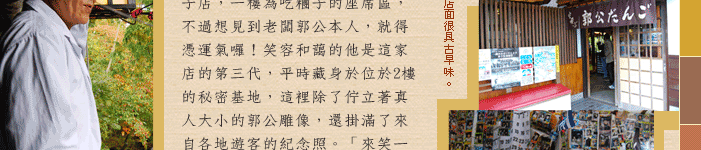 子店，一樓為吃糰子的座席區，
不過想見到老闆郭公本人，就得
憑運氣囉！笑容和藹的他是這家
店的第三代，平時藏身於位於2樓
的秘密基地，這裡除了佇立著真
人大小的郭公雕像，還掛滿了來
自各地遊客的紀念照。「來笑一
店面很具古早味。
郭公だんご